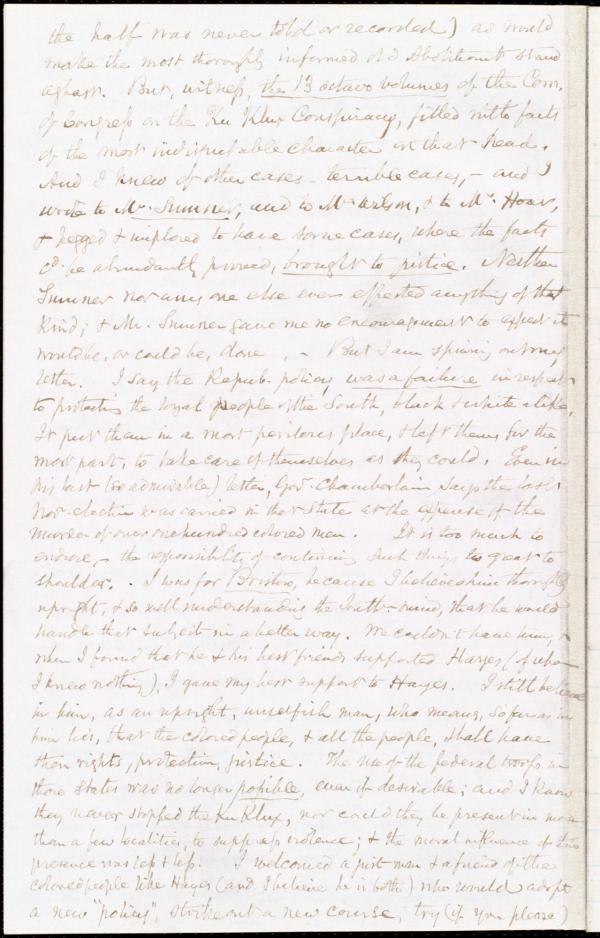 the half was never told or recorded) as would
make the most thoroughly informed old Abolitionist stand
aghast. But, witness, the 13 octavo volumes of the Com.
of Congress on the Ku Klux Conspiracy, filled with facts
of the most indisputable character on that head.
And I knew of other cases - terrible cases, - and I
wrote to Mr. Sumner, and to Mr. Wilson, & to Mr. Hoar,
& begged & implored to have some cases, where the facts
cd. be abundantly proved, brought to justice. Neither
Sumner nor any one else ever effected anything of that
kind; & Mr. Sumner gave me no encouragement to expect it
would be, or could be, done. - But I am spinning out my
letter. I say the Repub. policy was a failure in respect
to protecting the loyal people of the South, black & white alike.
It put them in a most perilous place, & left them for the
most part, to take care of themselves as they could. Even in
his last (so admirable) letter, Gov. Chamberlain says the last
Nov. election was carried in that State at the expense of the
murder of over one hundred colored men. It is too much to
endure, - the responsibility of continuing such things too great to
shoulder. I was for Bristow, because I believe him thoroughly
upright, & so well understanding the South-mind, that he would
handle that subject in a better way. We couldn't have him, &
when I found that he & his best friends supported Hayes (of whom
I knew nothing), I gave my best support to Hayes. I still believe
in him, as an upright, unselfish man, who means, so far as in
him lies, that the colored people, & all the people, shall have
their rights, protection, justice. The use of the federal troops in
those States was no longer possible, even if desirable; and I know
they never stopped the Ku Klux, nor could they be present in more
than a few localities, to suppress violence; & the moral influence of their
presence was less & less. I welcomed a just man & a friend of the
colored people like Hayes (and I believe he is both) who would adopt
a new "policy", strike out a new course, try (if you please)